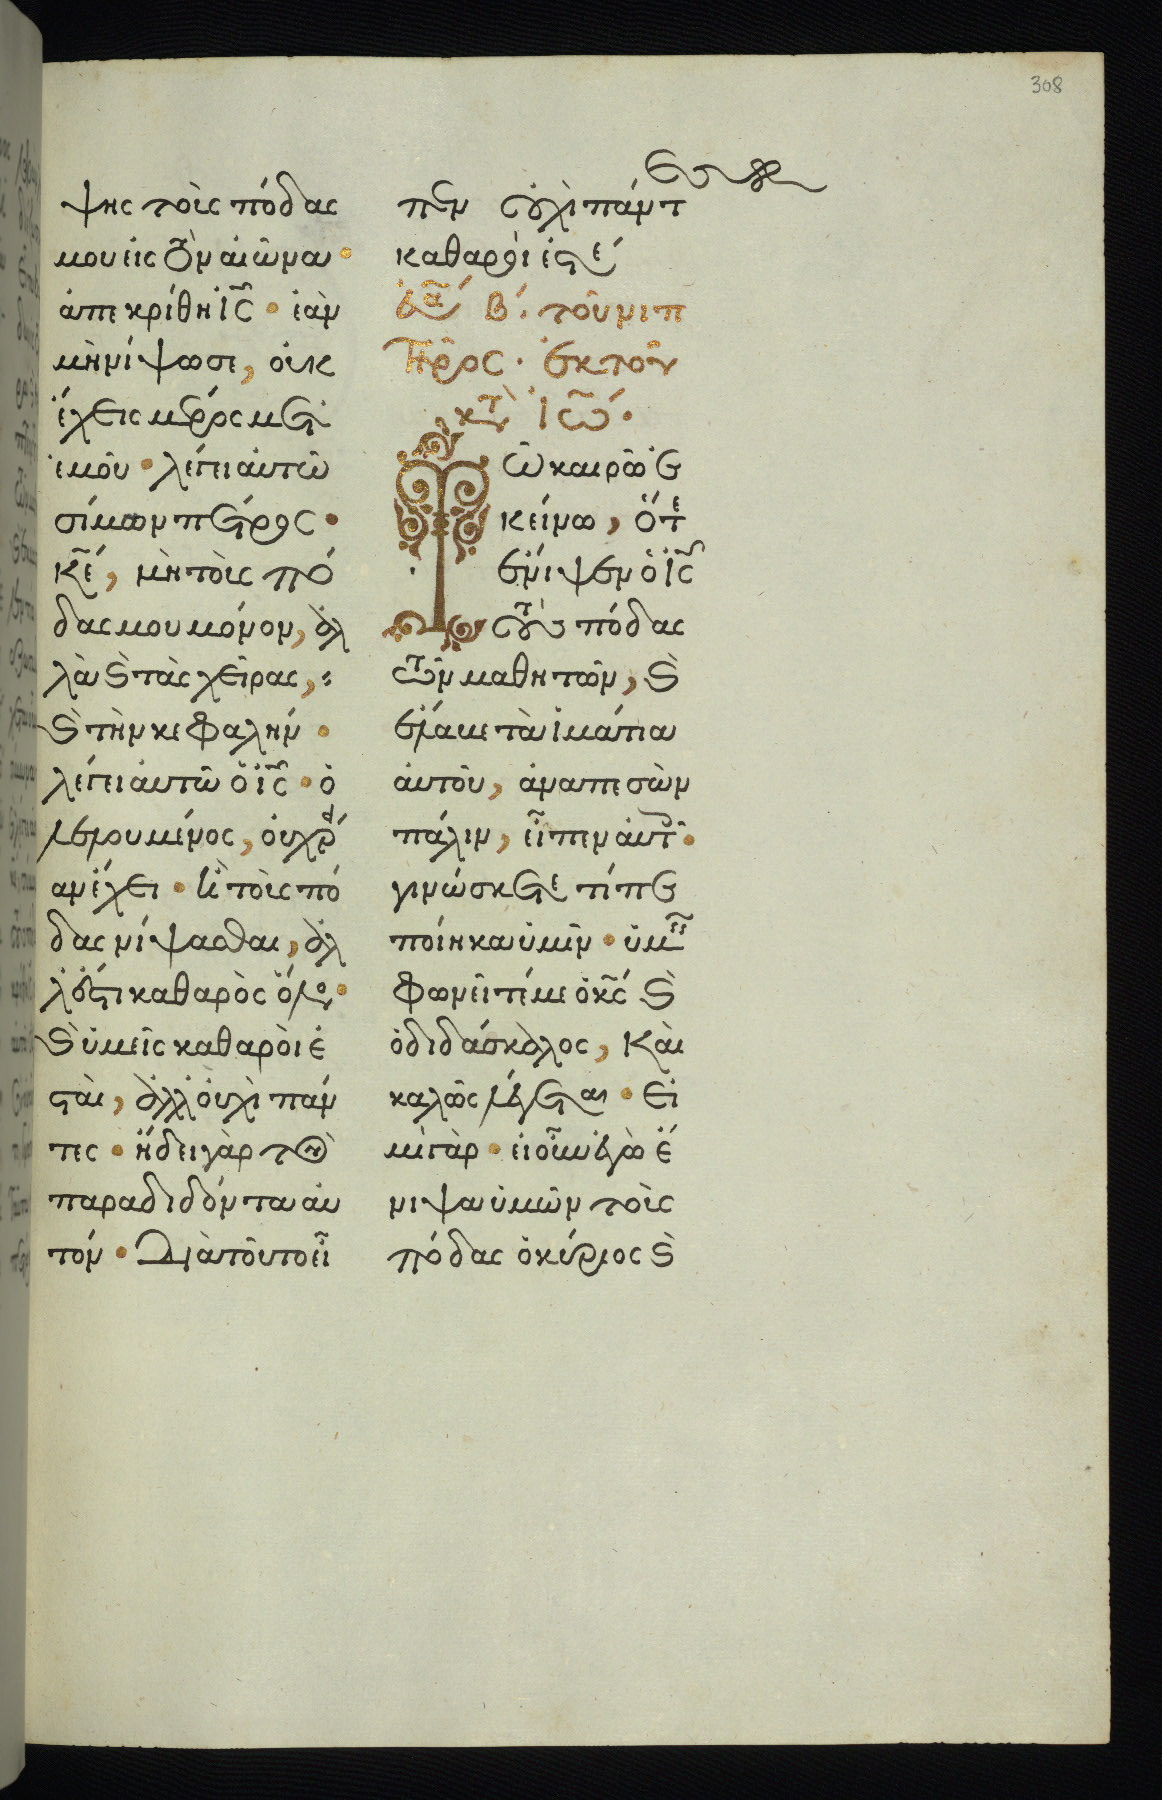 308
ψης τοὺς πόδας
μου εἰς τὸν αἰῶνα·
ἀπεκρίθη ἰς̄· ἐὰν
μὴ νίψω σε, οὐκ
ἔχεις μέρος μετ
ἐμοῦ· λέγει αὐτῶ
σίμων πέτρος·
κε̄, μὴ τοὺς πό
δας μου μόνον, ἀλ
λὰ καὶ τὰς χεῖρας,
καὶ τὴν κεφαλήν·
λέγει αὐτῶ ὁ ἰς̄· ὁ
λελουμένος, οὐ χρεί
αν ἔχει· ἢ τοὺς πό
δας νίψασθαι, ἀλ
λ' ἔστι καθαρὸς ὅλος·
καὶ ὑμεῖς καθαροὶ ἐ
σται, ἀλλ' οὐχὶ πάν
τες· ἤδει γὰρ τὸν
παραδιδόντα αὐ
τόν· Διὰ τοῦτο εἶ
πεν οὐχὶ πάντ
καθαροί ἐστε
εὐα β΄. τοῦ νιπ
τῆρος· ἐκ τοῦ
κτ ἰω̄·
Τῶ καιρῶ ἐ
κείνω, ὅτε
ἔνιψεν ὁ ἰς̄
τοὺς πόδας
τῶν μαθητῶν, καὶ
ἔλαβε τὰ ἱμάτια
αὐτοῦ, ἀναπεσὼν
πάλιν, εἶπεν αὐτοῖς·
γινώσκετε τί πε
ποίηκα ὑμῖν· ὑμεῖς
φωνεῖτέ με ὁ κς̄ καὶ
ὁ διδάσκαλος, Καὶ
καλῶς λέγεται· εἰ
μὶ γάρ· εἰ οὖν ἐγὼ ἔ
νιψα ὑμῶν τοὺς
πόδας ὁ κύριος καὶ